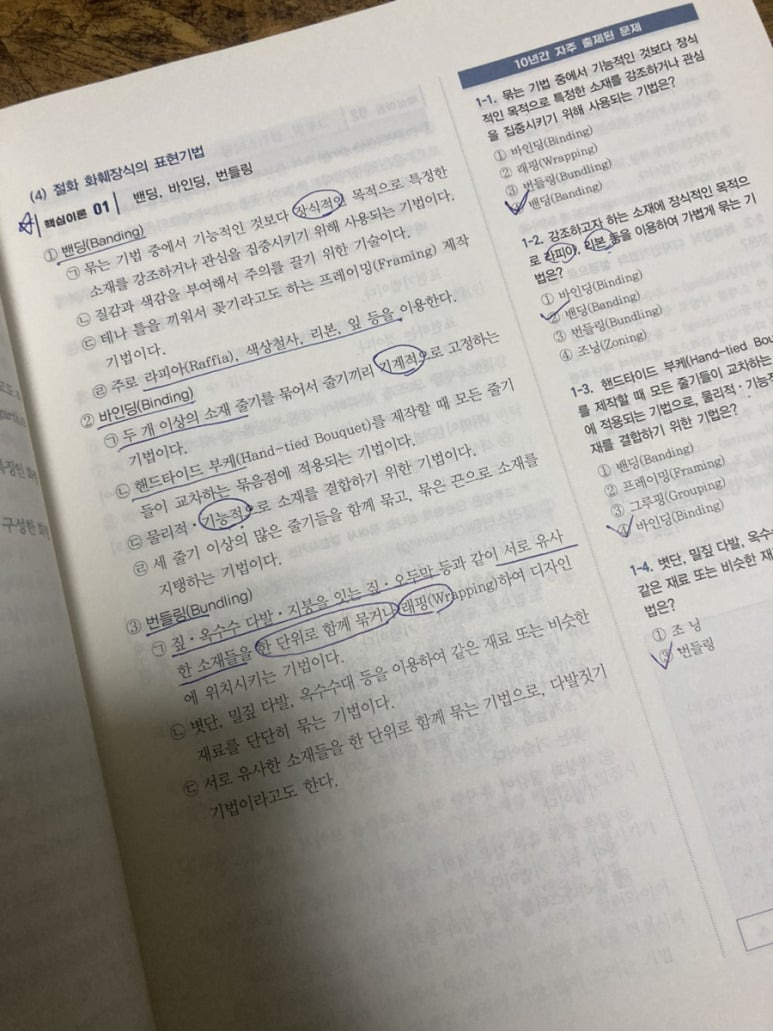 (4) 절화 화훼장식의 표현기법
핵심이론 01 밴딩, 바인딩, 번들링
① 밴딩(Banding)
㉠ 묶는 기법 중에서 기능적인 것보다 장식적인 목적으로 특정한
소재를 강조하거나 관심을 집중시키기 위해 사용되는 기법이다.
㉡ 질감과 색감을 부여해서 주의를 끌기 위한 기술이다.
㉢ 테나 틀을 끼워서 꽂기라고도 하는 프레이밍(Framing) 제작
기법이다.
㉣ 주로 라피아(Raffia), 색상철사, 리본, 잎 등을 이용한다.
② 바인딩(Binding)
㉠ 두 개 이상의 소재 줄기를 묶어서 줄기끼리 기계적으로 고정하는
기법이다.
㉡ 핸드타이드 부케(Hand-tied Bouquet)를 제작할 때 모든 줄기
들이 교차하는 묶음점에 적용되는 기법이다.
㉢ 물리적·기능적으로 소재를 결합하기 위한 기법이다.
㉣ 세 줄기 이상의 많은 줄기들을 함께 묶고, 묶은 끈으로 소재를
지탱하는 기법이다.
③ 번들링(Bundling)
㉠ 짚·옥수수 다발·지붕을 잇는 짚·오두막 등과 같이 서로 유사
한 소재들을 한 단위로 함께 묶거나 래핑(Wrapping)하여 디자인
에 위치시키는 기법이다.
㉡ 볏단, 밀짚 다발, 옥수수대 등을 이용하여 같은 재료 또는 비슷한
재료를 단단히 묶는 기법이다.
㉢ 서로 유사한 소재들을 한 단위로 함께 묶는 기법으로, 다발짓기
기법이라고도 한다.
10년간 자주 출제된 문제
1-1. 묶는 기법 중에서 기능적인 것보다 장식
적인 목적으로 특정한 소재를 강조하거나 관심
을 집중시키기 위해 사용되는 기법은?
① 바인딩(Binding)
② 래핑(Wrapping)
③ 번들링(Bundling)
밴딩(Banding)
1-2. 강조하고자 하는 소재에 장식적인 목적으
로 라피아, 리본 등을 이용하여 가볍게 묶는 기
법은?
① 바인딩(Binding)
② 밴딩(Banding)
③ 번들링(Bundling)
④ 조닝(Zoning)
1-3. 핸드타이드 부케(Hand-tied Bou
를 제작할 때 모든 줄기들이 교차하는
에 적용되는 기법으로, 물리적·기능적
재를 결합하기 위한 기법은?
① 밴딩(Banding)
② 프레이밍(Framing)
③ 그루핑(Grouping)
④ 바인딩(Binding)
1-4. 볏단, 밀짚 다발, 옥수수
같은 재료 또는 비슷한 재
법은?
① 조 닝
③ 번들링
구성원